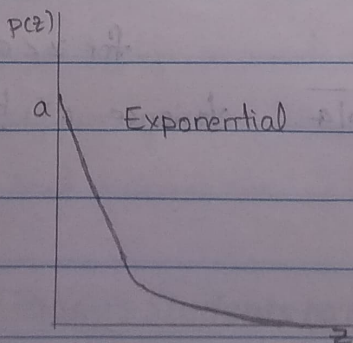 p(z)
a
Exponential
z